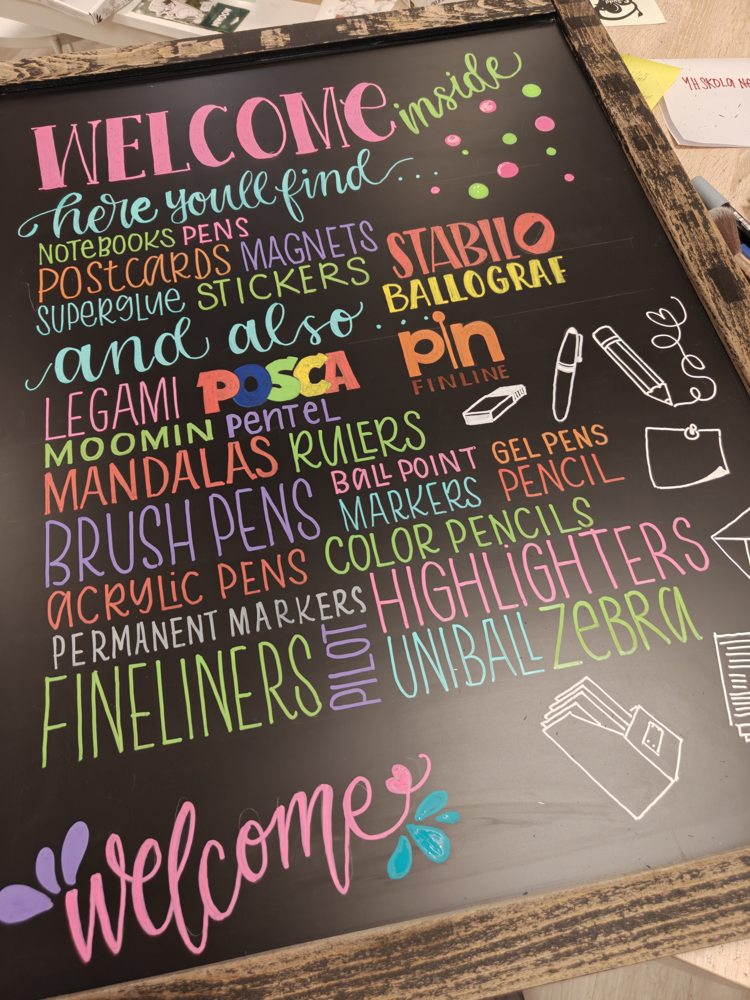 WELCOME inside
here youll find...
NOTEBOOKS PENS
POSTCARDS MAGNETS STABILO
SUPERGLUE STICKERS BALLOGRAF
and also...
LEGAMI POSCA pin
FINLINE
MOOMIN pentel
MANDALAS RULERS
BRUSH PENS BALL POINT GEL PENS
MARKERS PENCIL
ACRYLIC PENS COLOR PENCILS
PERMANENT MARKERS HIGHLIGHTERS
FINELINERS PILOT UNIBALL ZEBRA
welcome